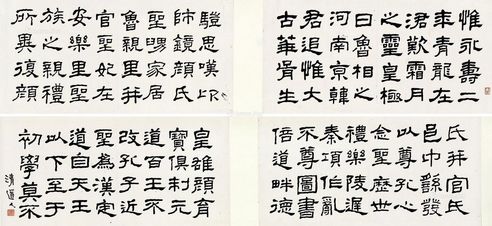 惟永壽二
年青龍在
涒歎霜月
之靈皇極
日魯相之
河南京韓
君追惟大
古華胥生
驥思嘆卬
師鏡顏氏
聖舅家居
魯親里并
官聖妃在
安樂里聖
族之親禮
所異復顏
氏并官氏
邑中繇發
以尊孔心
念聖歷世
禮樂陵遲
秦項作亂
不尊圖書
倍道畔德
皇雄顏育
寶俱制元
道百王不
改孔子近
聖為漢定
道自天王
以下至于
初學莫不
清道人